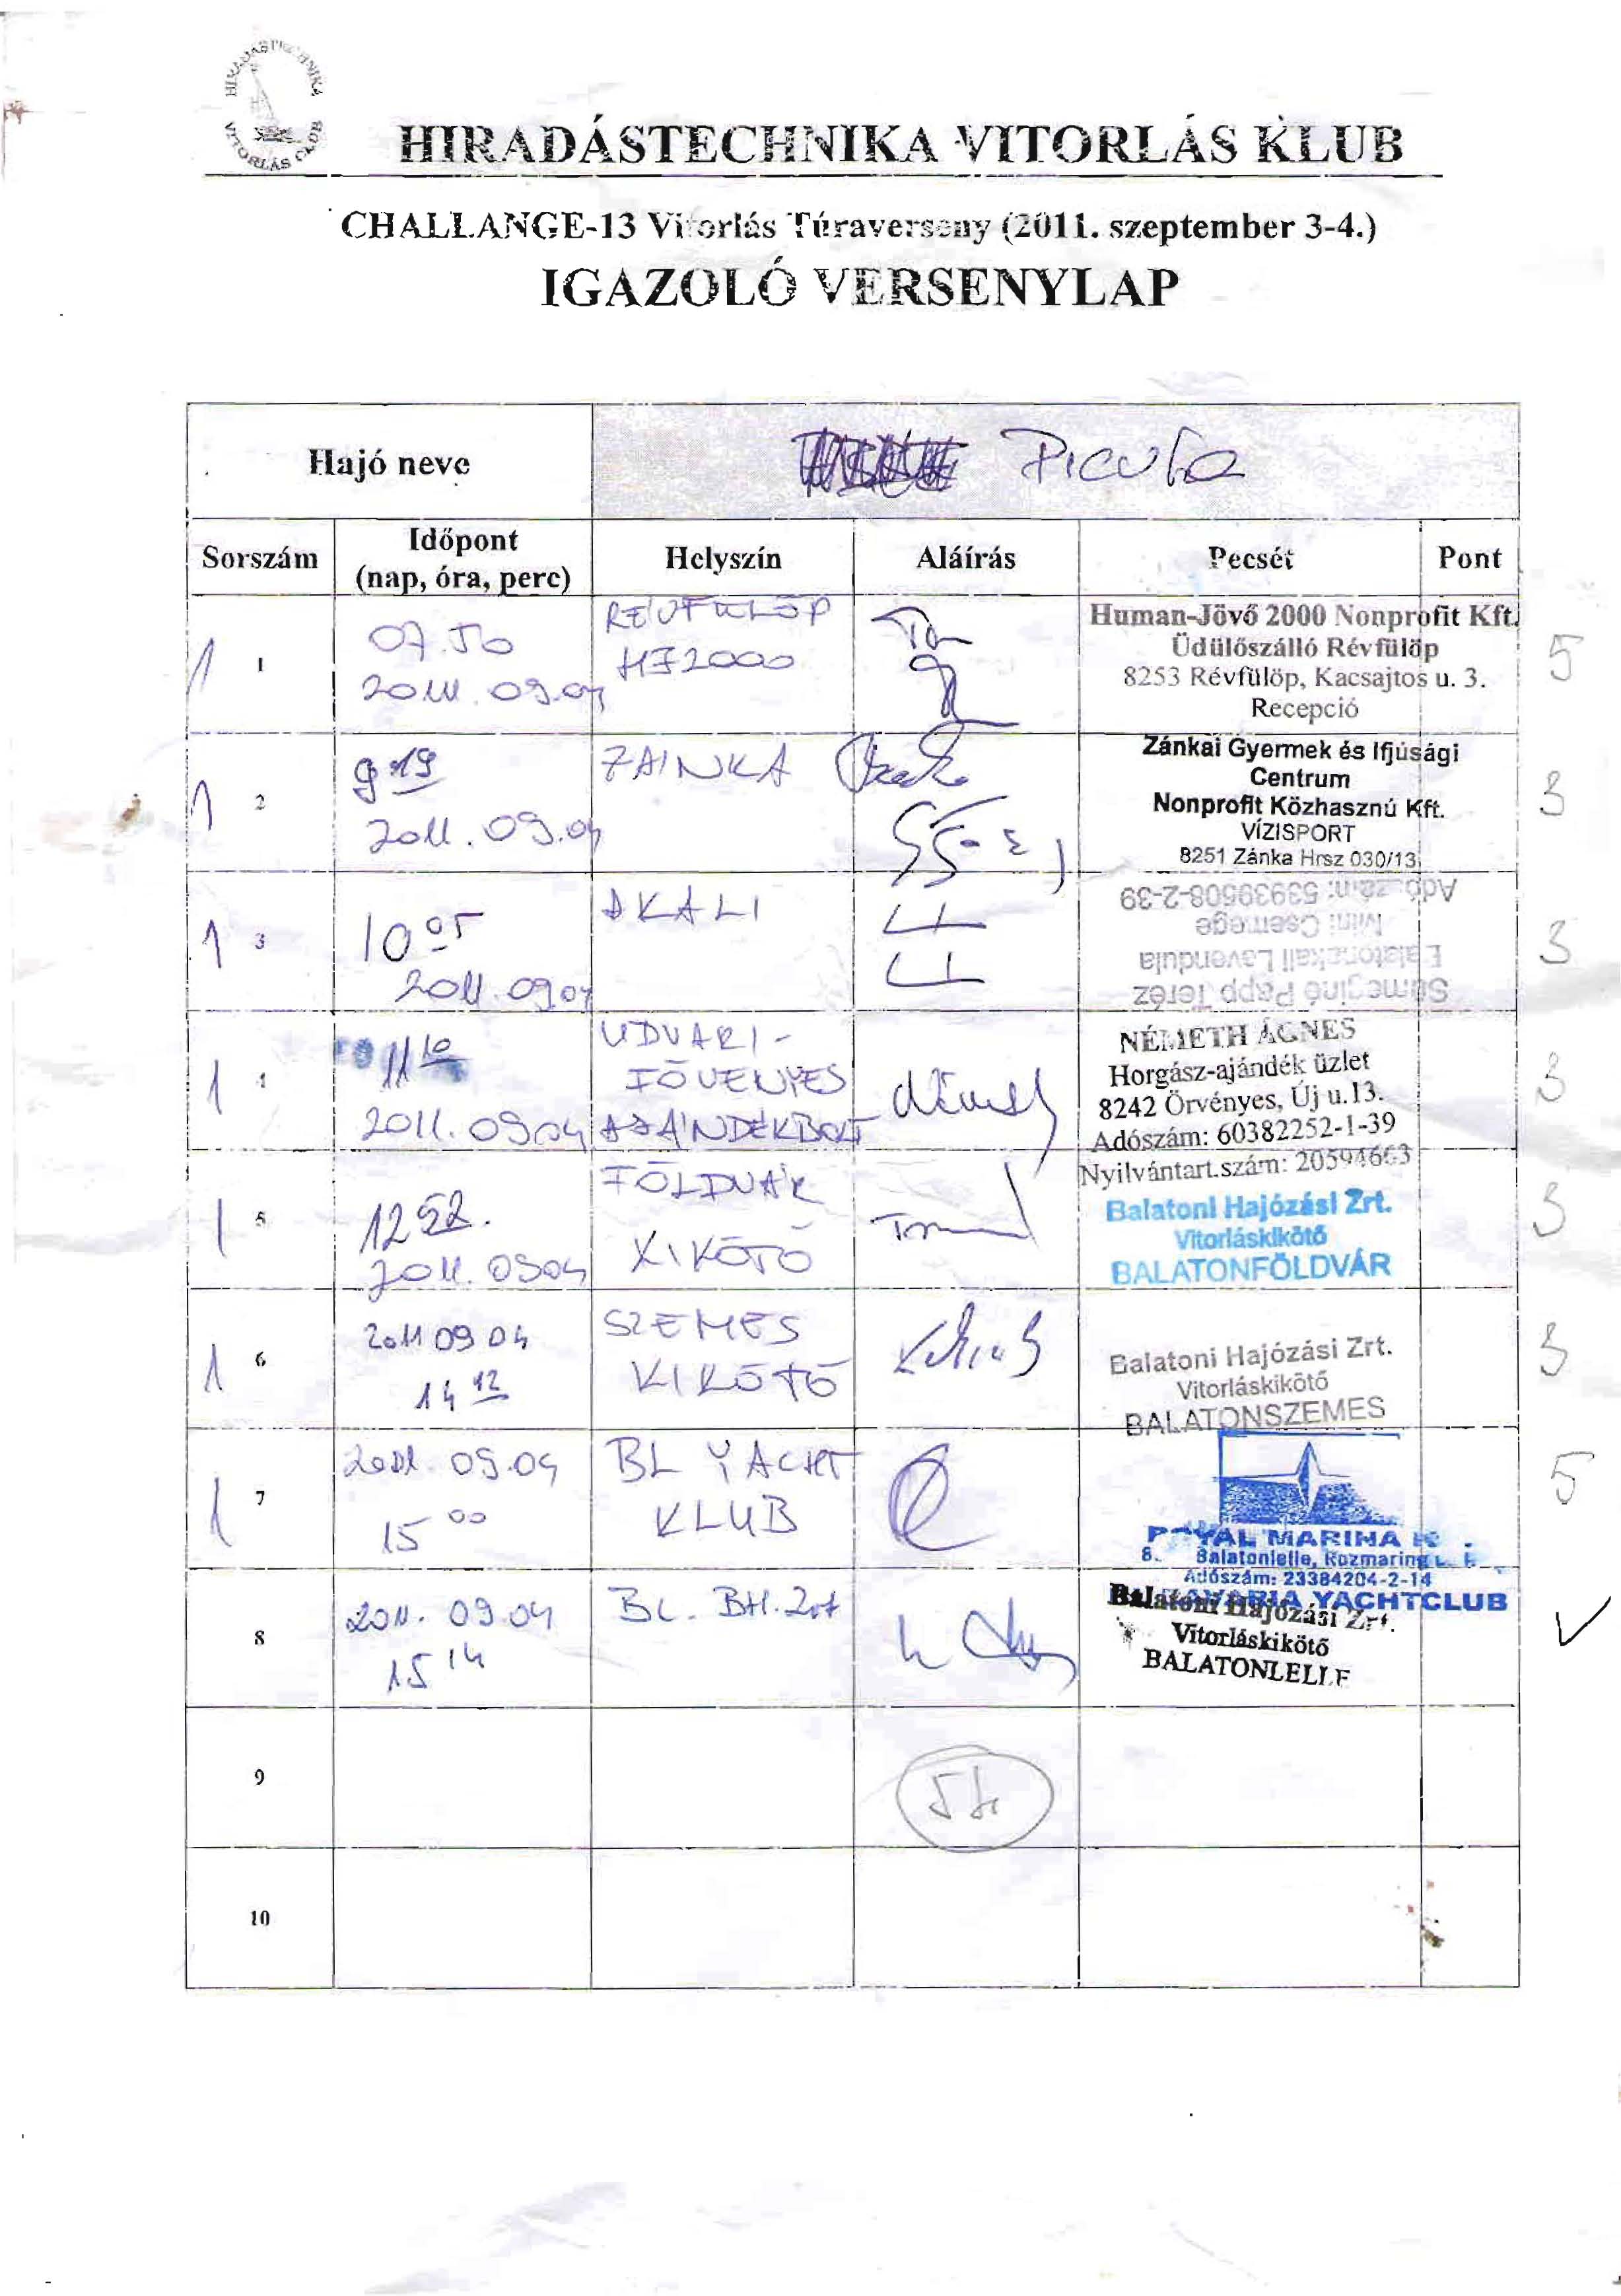 HIRADÁSTECHNIKA
VITORLÁS CLUB
HIRADÁSTECHNIKA VITORLÁS KLUB
CHALLANGE-13 Vitorlás Túraverseny (2011. szeptember 3-4.)
IGAZOLÓ VERSENYLAP
Hajó neve
Sorszám
Időpont
(nap, óra, perc)
Helyszín
Aláírás
Pecsét
Pont
1 1
07.50
2011.09.04
RÉVFÜLÖP
HJ2000
Human-Jövő 2000 Nonprofit Kft.
Üdülőszálló Révfülöp
8253 Révfülöp, Kacsajtos u. 3.
Recepció
5
1 2
9 19
2011.09.04
ZÁINKA
Zánkai Gyermek és Ifjúsági
Centrum
Nonprofit Közhasznú Kft.
VÍZISPORT
8251 Zánka Hrsz 030/13
3
1 3
10 05
2011.0904
AKALI
Sümeginé Papp Teréz
Balatonakali Levendula
Mini Csemege
Adó szám: 53939508-2-39
3
1 4
11 10
2011.0904
UDVARI-
FÖVENYES
AJÁNDÉKBOLT
NÉMETH ÁGNES
Horgász-ajándék üzlet
8242 Örvényes, Új u.13.
Adószám: 60382252-1-39
Nyilvántart.szám: 20594663
3
1 5
12 52.
2011.0904
FÖLDVÁR
KIKÖTŐ
Balatoni Hajózási Zrt.
Vitorláskikötő
BALATONFÖLDVÁR
3
1 6
2011 09 04
14 12
SZEMES
KIKÖTŐ
Balatoni Hajózási Zrt.
Vitorláskikötő
BALATONSZEMES
3
1 7
2011.09.04
15 00
BL YACHT
KLUB
ROYAL MARINA K
8. Balatonlelle, Rozmaring u.
Adószám: 23384204-2-14
BAVARIA YACHTCLUB
5
8
2011.09.04
15 14
BL. BH. Zrt
Balatoni Hajózási Zrt.
Vitorláskikötő
BALATONLELLE
9
10